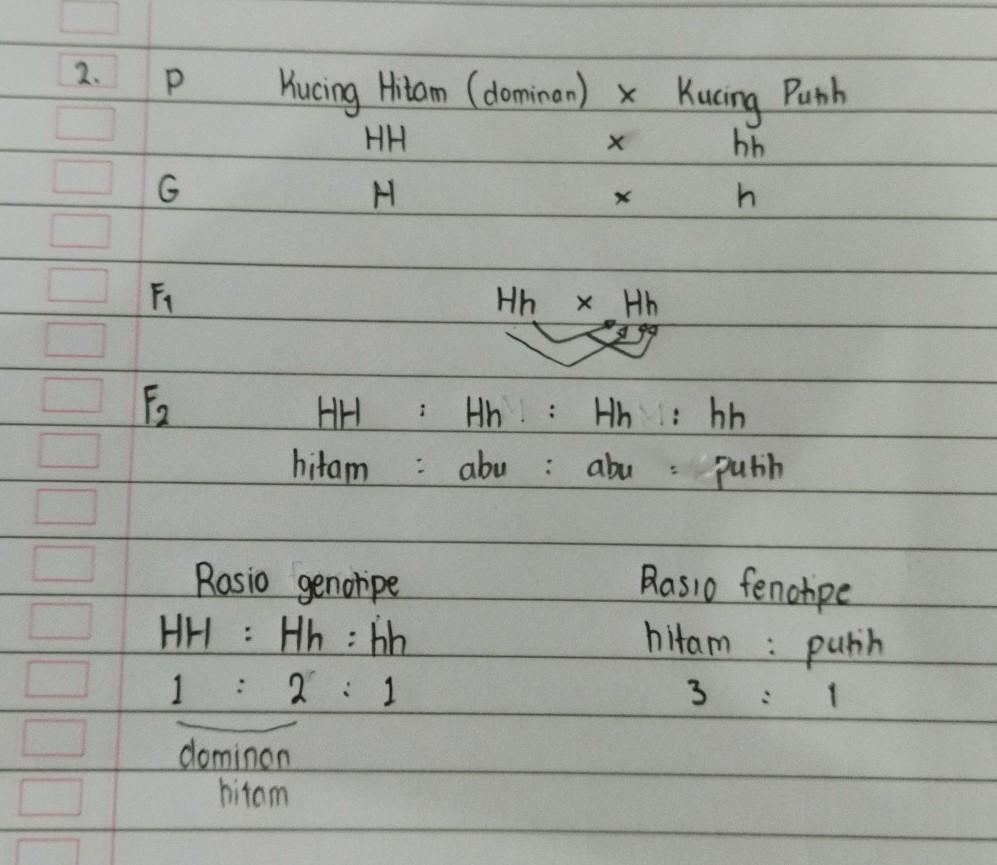 2. P Kucing Hitam (dominan) x Kucing Putih
HH x hh
G H x h
F1 Hh x Hh
F2 HH : Hh : Hh : hh
hitam : abu : abu : putih
Rasio genotipe Rasio fenotipe
HH : Hh : hh hitam : putih
1 : 2 : 1 3 : 1
dominan
hitam